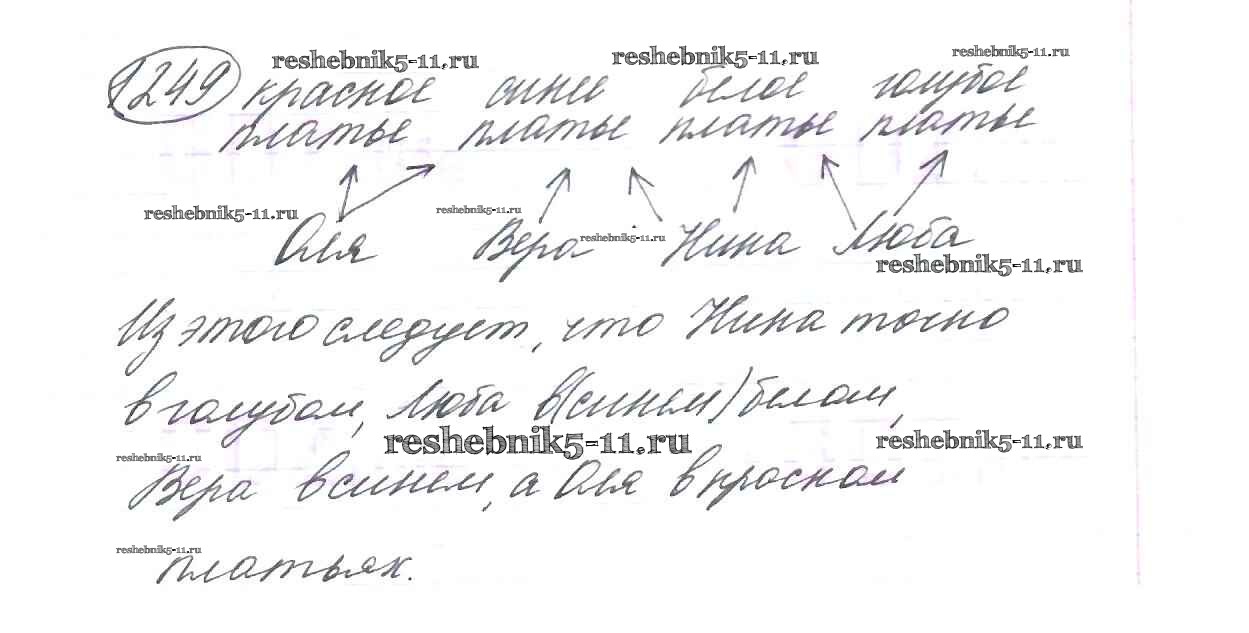 reshebnik5-11.ru reshebnik5-11.ru reshebnik5-11.ru
1249 красное синее белое голубое
платье платье платье платье
reshebnik5-11.ru reshebnik5-11.ru
Оля Вера reshebnik5-11.ru Нина Люба
reshebnik5-11.ru
Из этого следует, что Нина точно
в голубом, Люба в(синем) белом,
reshebnik5-11.ru reshebnik5-11.ru
reshebnik5-11.ru
Вера в синем, а Оля в красном
reshebnik5-11.ru
платьях.